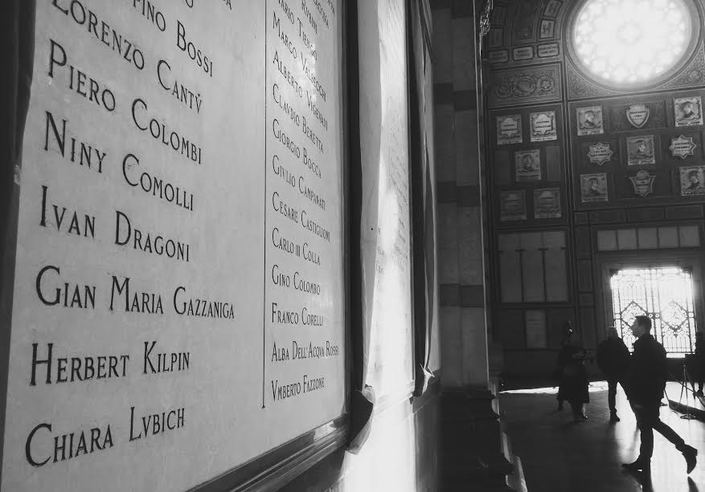 PINO BOSSI
LORENZO CANTV̀
PIERO COLOMBI
NINY COMOLLI
IVAN DRAGONI
GIAN MARIA GAZZANIGA
HERBERT KILPIN
CHIARA LVBICH
MARCO
ALBERTO
CLAUDIO BERETTA
GIORGIO BOCCA
GIVLIO CAMPARATI
CESARE CASTIGLIONI
CARLO III COLLA
GINO COLOMBO
FRANCO CORELLI
ALBA DELL'ACQVA ROSSI
VMBERTO FAZZONE